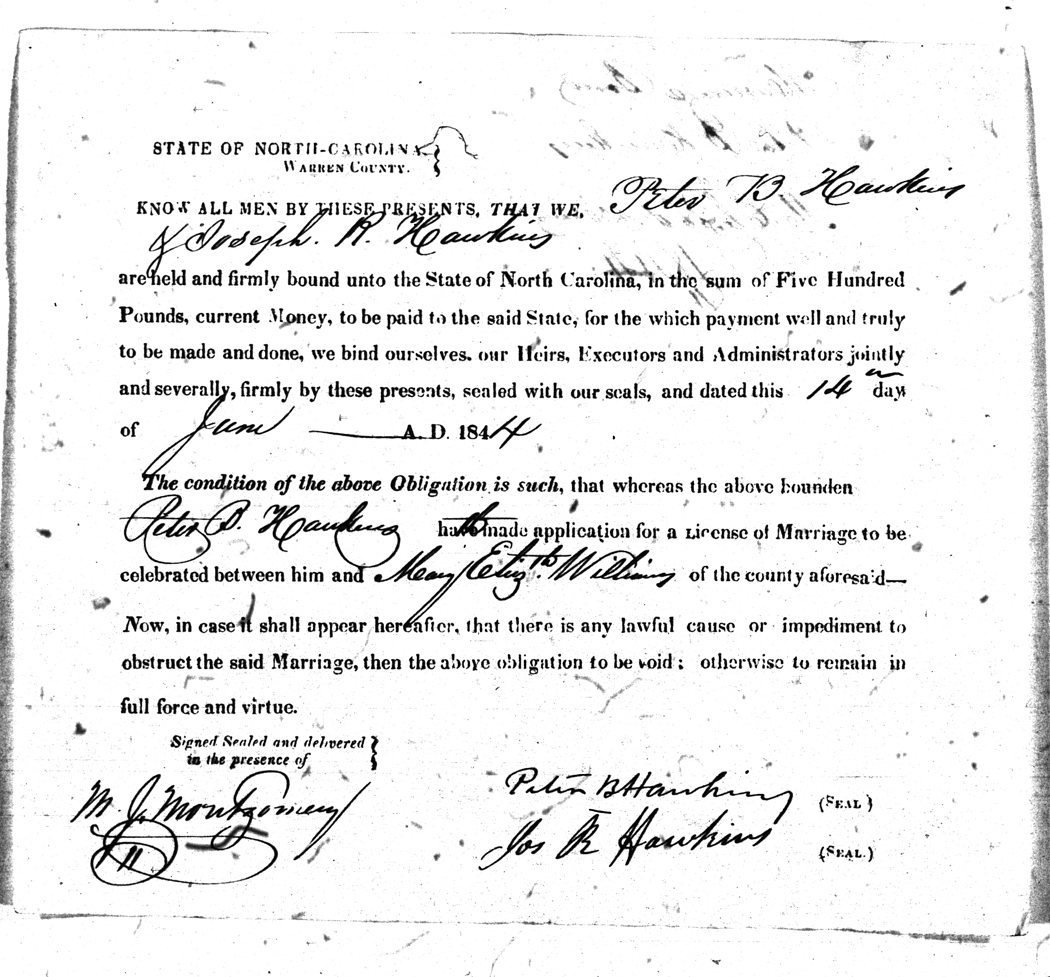 STATE OF NORTH-CAROLINA
WARREN COUNTY.
KNOW ALL MEN BY THESE PRESENTS, THAT WE, Peter B Hawkins
& Joseph. R. Hawkins
are held and firmly bound unto the State of North Carolina, in the sum of Five Hundred
Pounds, current Money, to be paid to the said State, for the which payment well and truly
to be made and done, we bind ourselves. our Heirs, Executors and Administrators jointly
and severally, firmly by these presents, sealed with our seals, and dated this 14 day
of June A. D. 1844
The condition of the above Obligation is such, that whereas the above bounden
Peter B. Hawkins hath made application for a License of Marriage to be
celebrated between him and Mary Elizth. Williams of the county aforesaid—
Now, in case it shall appear hereafter, that there is any lawful cause or impediment to
obstruct the said Marriage, then the above obligation to be void; otherwise to remain in
full force and virtue.
Signed Sealed and delivered
in the presence of
M. J. Montgomery
Peter B Hawkins (SEAL)
Jos R Hawkins (SEAL.)